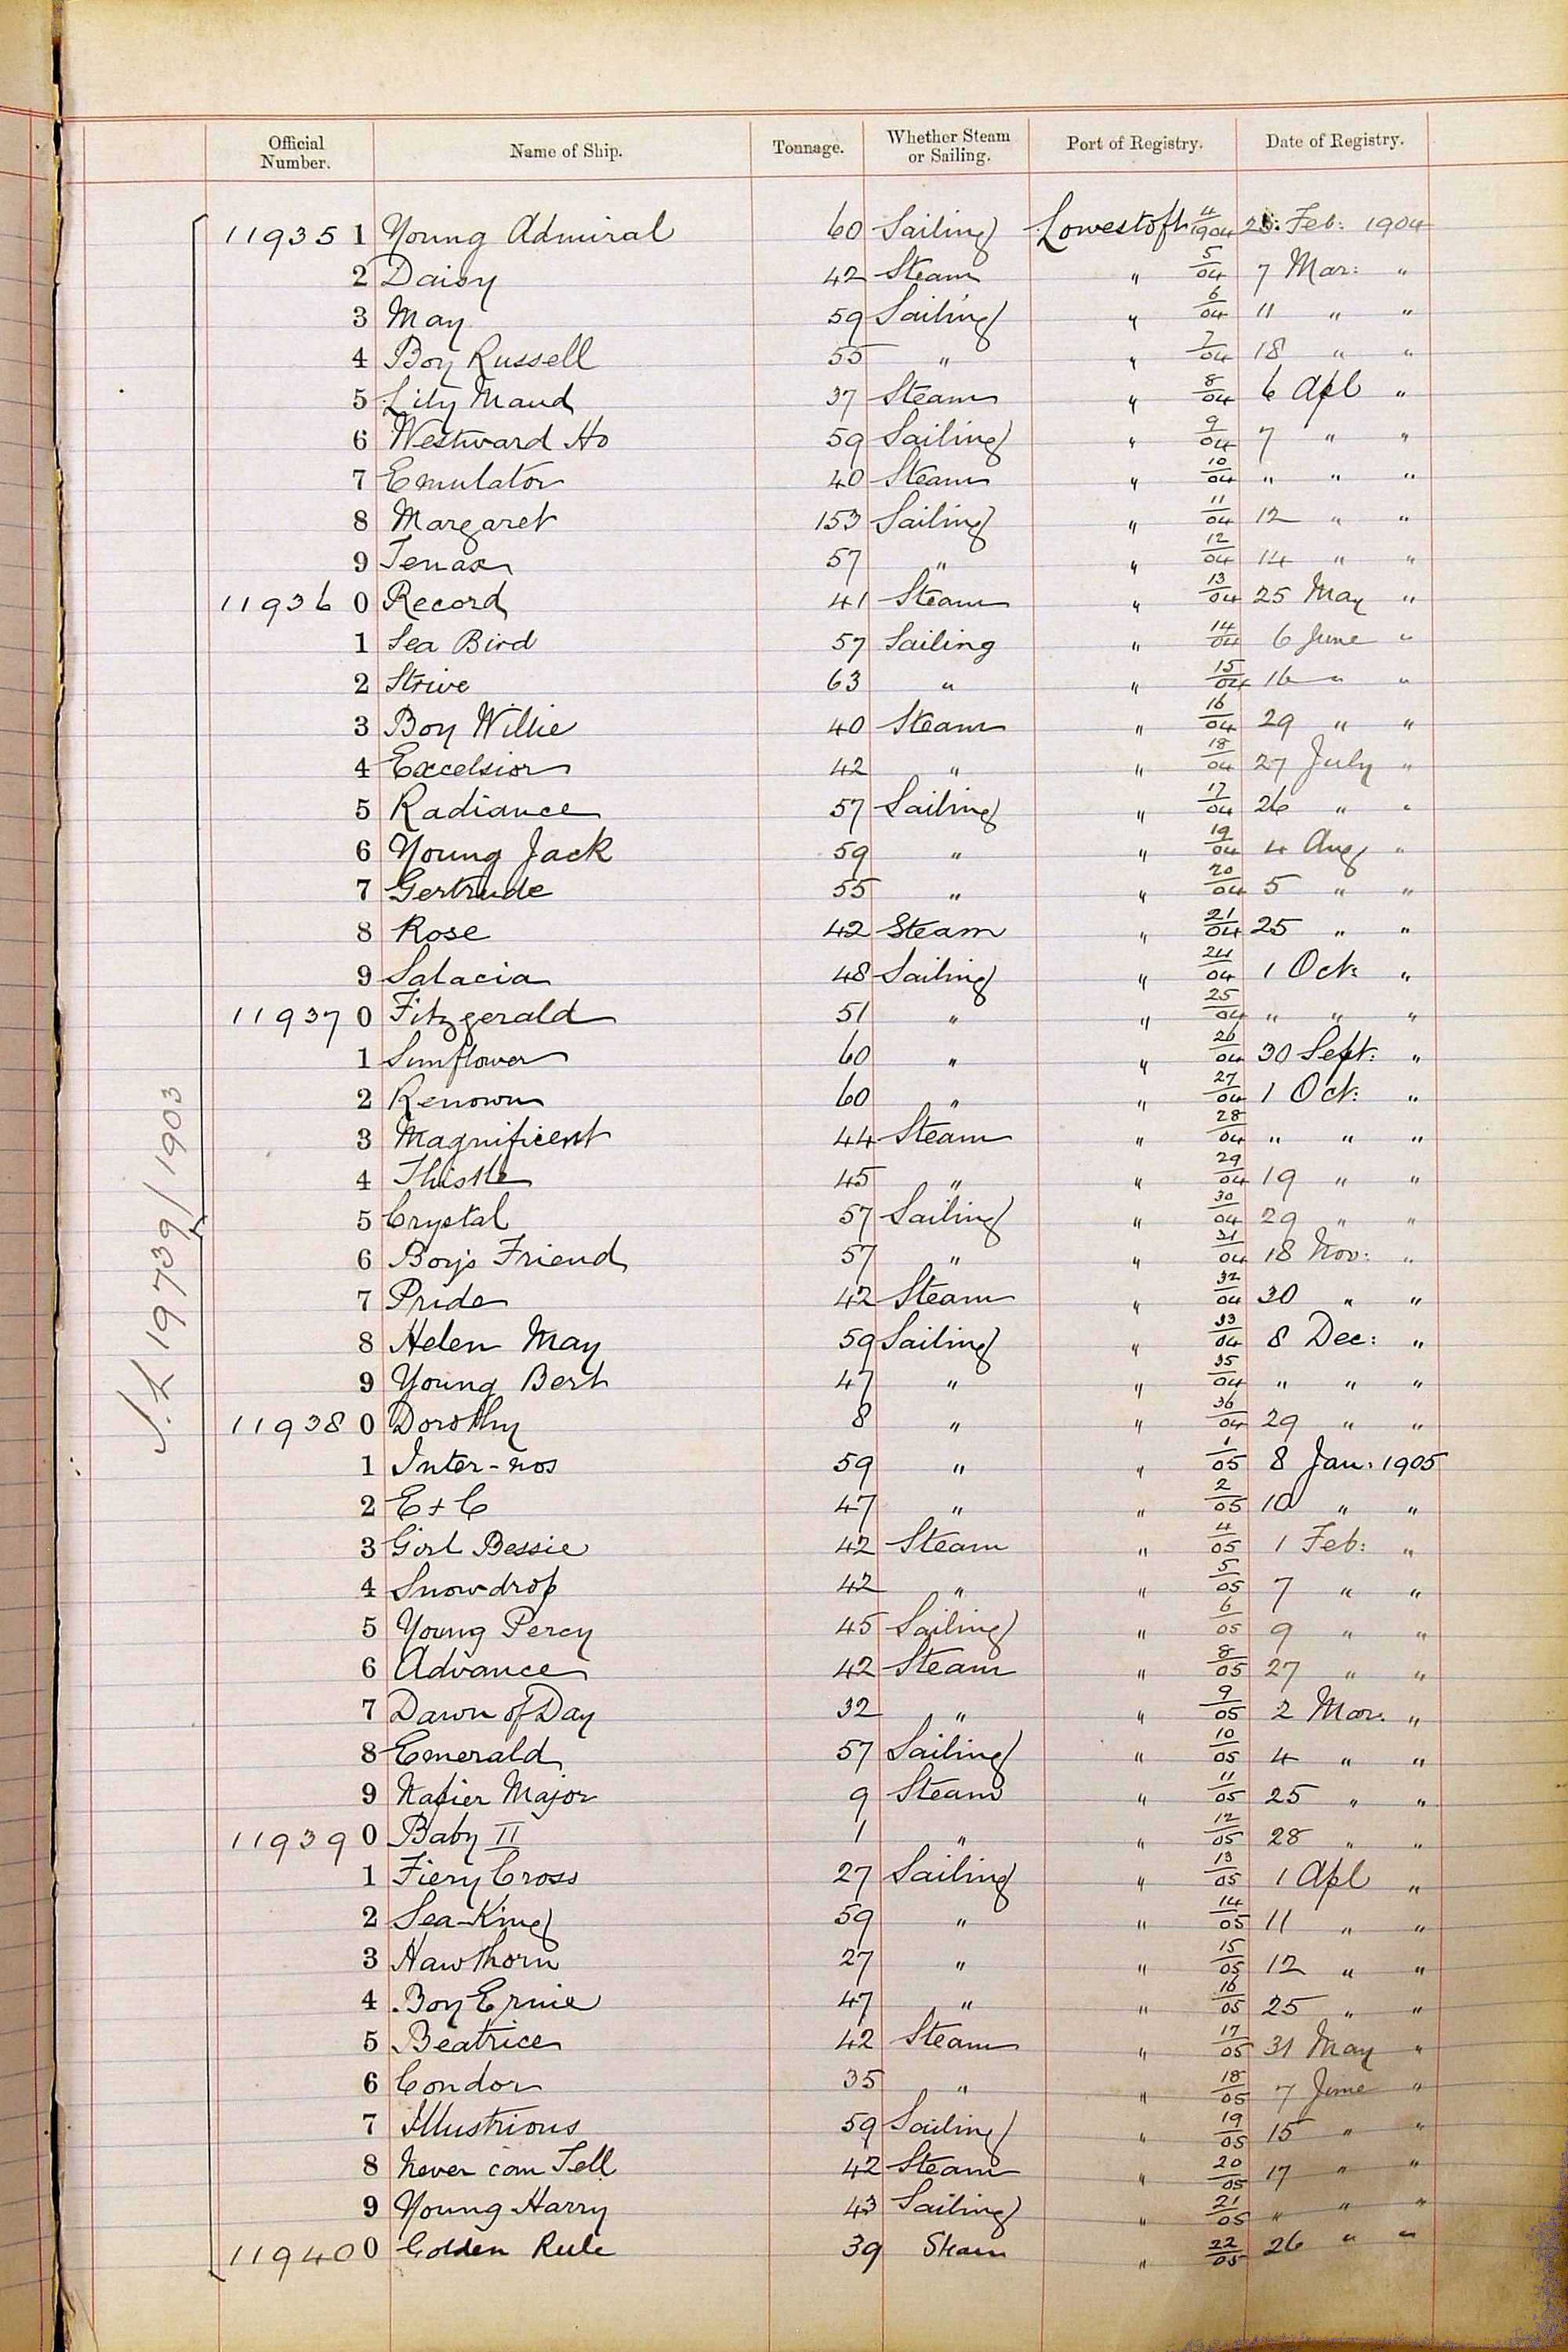 Official Number. Name of Ship. Tonnage. Whether Steam or Sailing. Port of Registry. Date of Registry.
119351 Young Admiral 60 Sailing Lowestoft 4/1904 Feb: 1904
2 Daisy 42 Steam " 5/04 7 Mar: "
3 May 59 Sailing " 6/04 11 " "
4 Boy Russell 55 " " 7/04 18 " "
5 Lily Maud 37 Steam " 8/04 6 Apl "
6 Westward Ho 59 Sailing " 9/04 7 " "
7 Emulator 40 Steam " 10/04 " " "
8 Margaret 153 Sailing " 11/04 12 " "
9 Tenax 57 " " 12/04 14 " "
119360 Record 41 Steam " 13/04 25 May "
1 Sea Bird 57 Sailing " 14/04 6 June "
2 Strive 63 " " 15/04 16 " "
3 Boy Willie 40 Steam " 16/04 29 " "
4 Excelsior 42 " " 18/04 27 July "
5 Radiance 57 Sailing " 17/04 26 " "
6 Young Jack 59 " " 19/04 4 Aug "
7 Gertrude 55 " " 20/04 5 " "
8 Rose 42 Steam " 21/04 25 " "
9 Salacia 48 Sailing " 24/04 1 Oct: "
119370 Fitzgerald 51 " " 25/04 " " "
1 Sunflower 60 " " 26/04 30 Sept: "
2 Renown 60 " " 27/04 1 Oct: "
3 Magnificent 44 Steam " 28/04 " " "
4 Thistle 45 " " 29/04 19 " "
5 Crystal 57 Sailing " 30/04 29 " "
6 Boy's Friend 57 " " 31/04 18 Nov: "
7 Pride 42 Steam " 32/04 30 " "
8 Helen May 59 Sailing " 33/04 8 Dec: "
9 Young Bert 47 " " 35/04 " " "
119380 Dorothy 8 " " 36/04 29 " "
1 Inter-nos 59 " " 1/05 8 Jan: 1905
2 E + C 47 " " 2/05 10 " "
3 Girl Bessie 42 Steam " 4/05 1 Feb: "
4 Snowdrop 42 " " 5/05 7 " "
5 Young Percy 45 Sailing " 6/05 9 " "
6 Advance 42 Steam " 8/05 27 " "
7 Dawn of Day 32 " " 9/05 2 Mar: "
8 Emerald 57 Sailing " 10/05 4 " "
9 Napier Major 9 Steam " 11/05 25 " "
119390 Baby II 1 " " 12/05 28 " "
1 Fiery Cross 27 Sailing " 13/05 1 Apl "
2 Sea-King 59 " " 14/05 11 " "
3 Hawthorn 27 " " 15/05 12 " "
4 Boy Ernie 47 " " 16/05 25 " "
5 Beatrice 42 Steam " 17/05 31 May "
6 Condor 35 " " 18/05 7 June "
7 Illustrious 59 Sailing " 19/05 15 " "
8 Never can Tell 42 Steam " 20/05 17 " "
9 Young Harry 43 Sailing " 21/05 " " "
119400 Golden Rule 39 Steam " 22/05 26 " "
19739/1903